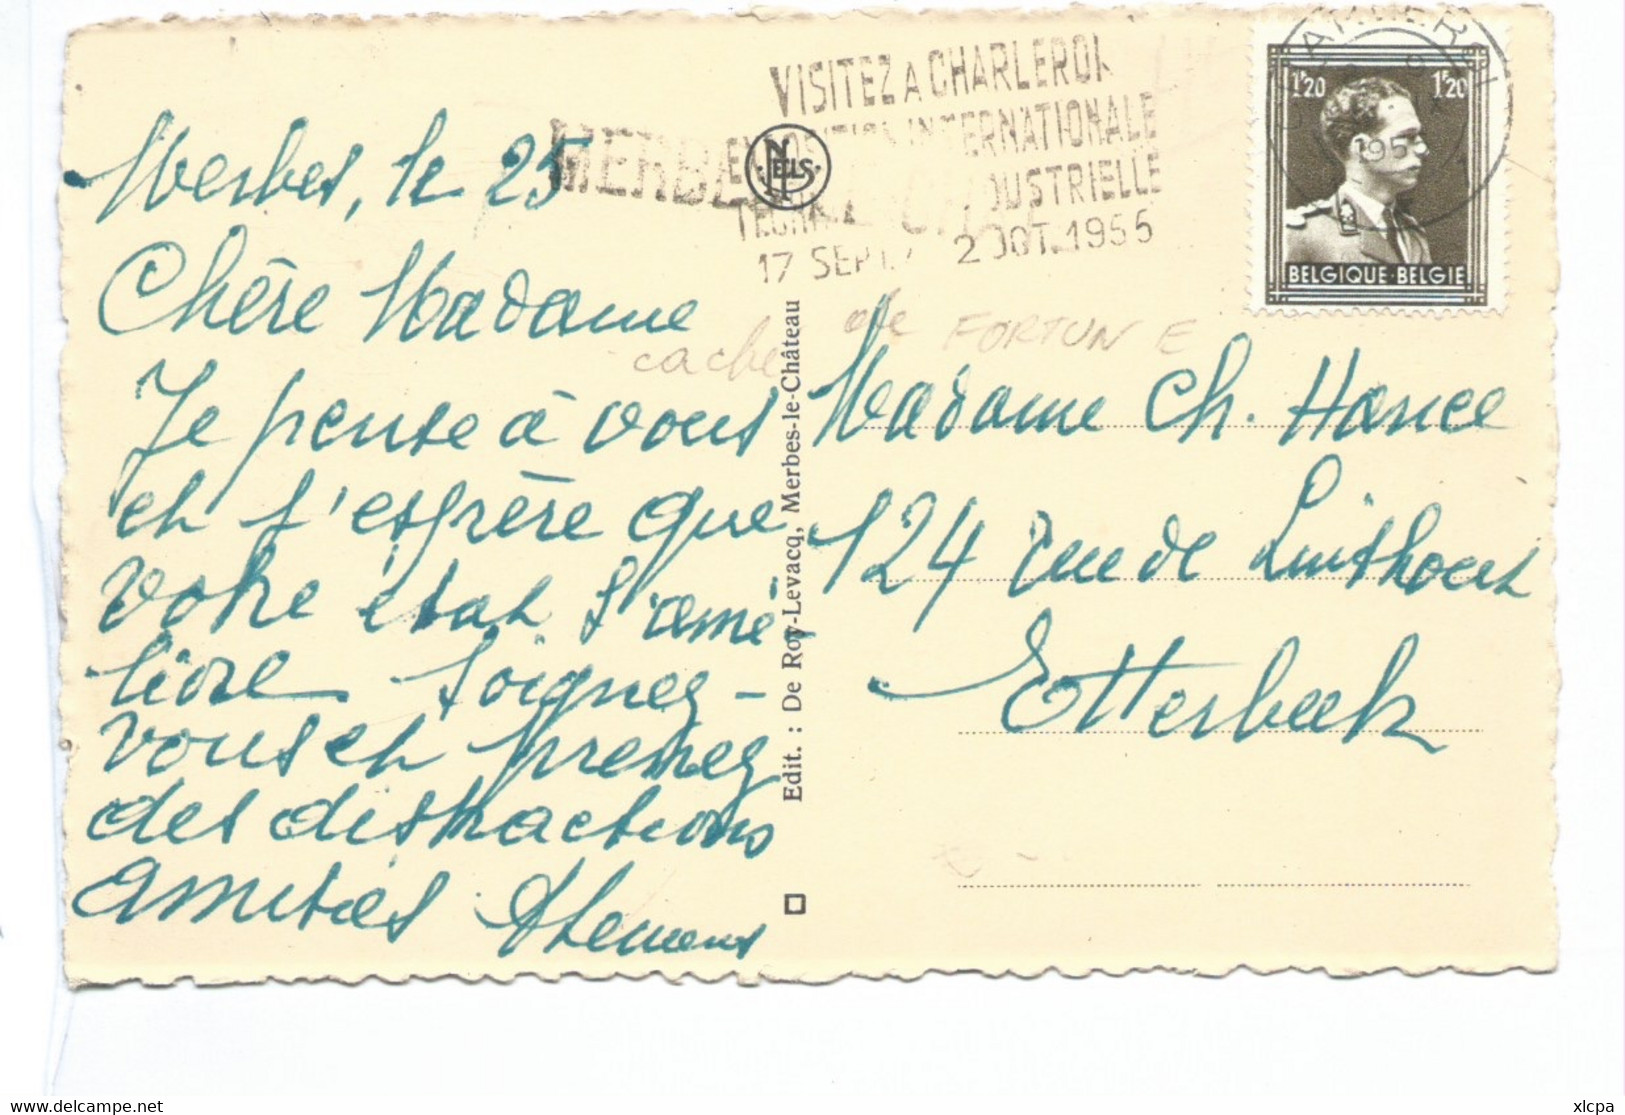 Merbes, le 25
Chère Madame
Je pense à vous
et j'espère que
votre état s'amé-
liore. Soignez-
vous et prenez
des distractions
Amitiés
VISITEZ A CHARLEROI
INTERNATIONALE
INDUSTRIELLE
17 SEPT. 2 OCT. 1955
MERBES
NELS
1F20 1F20
1955
BELGIQUE·BELGIE
cachet de FORTUNE
Edit. : De Roy-Levacq, Merbes-le-Château
Madame Ch. Hance
124 rue de Linthout
Etterbeek
www.delcampe.net
xlcpa